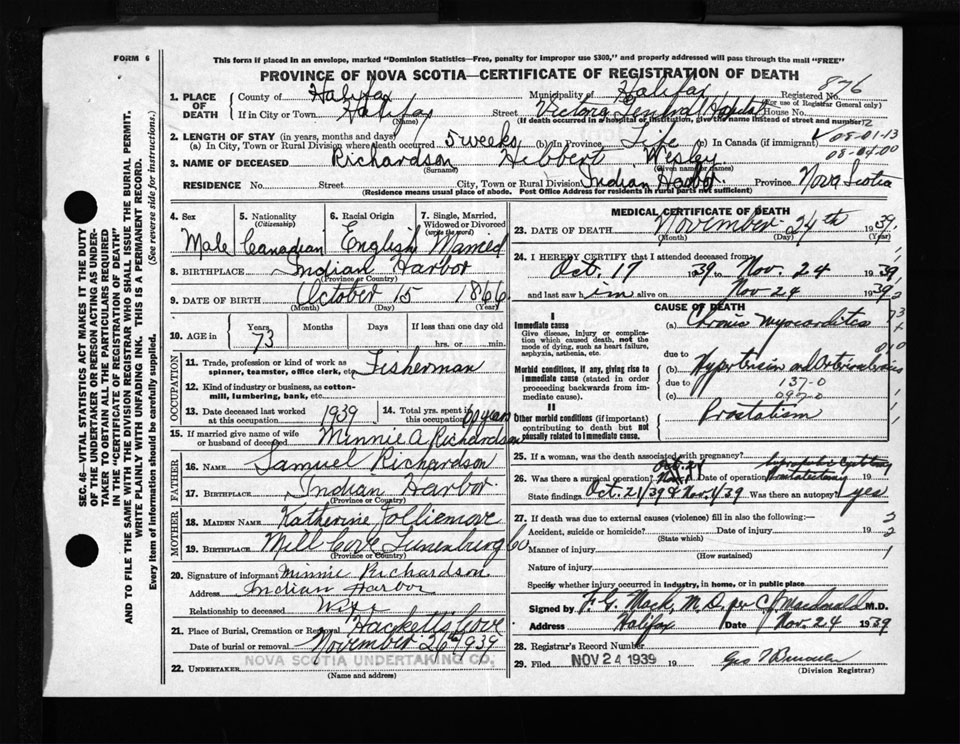 FORM 6
This form if placed in an envelope, marked "Dominion Statistics—Free, penalty for improper use $300," and properly addressed will pass through the mail "FREE"
PROVINCE OF NOVA SCOTIA—CERTIFICATE OF REGISTRATION OF DEATH
876
1. PLACE OF DEATH County of Halifax Municipality of Halifax Registered No.
(For use of Registrar General only)
If in City or Town Halifax Street Victoria General Hospital House No.
(Name) (If death occurred in a hospital or institution, give the name instead of street and number)
2. LENGTH OF STAY (in years, months and days)
(a) In City, Town or Rural Division where death occurred 5 weeks (b) In Province Life (c) In Canada (if immigrant) 08-01-13
08-04-00
3. NAME OF DECEASED Richardson Hibbert Wesley
(Surname) (Given name or names)
RESIDENCE No. Street City, Town or Rural Division Indian Harbor Province Nova Scotia
(Residence means usual place of abode. Post Office Address for residents in rural parts not sufficient)
4. Sex Male
5. Nationality (Citizenship) Canadian
6. Racial Origin English
7. Single, Married, Widowed or Divorced (write the word) Married
8. BIRTHPLACE Indian Harbor
(Province or Country)
9. DATE OF BIRTH October 15 1866
(Month) (Day) (Year)
10. AGE in Years Months Days If less than one day old
73 hrs. or min.
OCCUPATION
11. Trade, profession or kind of work as spinner, teamster, office clerk, etc. Fisherman
12. Kind of industry or business, as cotton-mill, lumbering, bank, etc.
13. Date deceased last worked at this occupation 1939
14. Total yrs. spent in this occupation 60 years
15. If married give name of wife or husband of deceased Minnie A Richardson
FATHER
16. NAME Samuel Richardson
17. BIRTHPLACE Indian Harbor
(Province or Country)
MOTHER
18. MAIDEN NAME Katherine Jolliemore
19. BIRTHPLACE Mill Cove Lunenburg Co
(Province or Country)
20. Signature of informant Minnie Richardson
Address Indian Harbor
Relationship to deceased Wife
21. Place of Burial, Cremation or Removal Hacketts Cove
Date of burial or removal November 26th 1939
22. UNDERTAKER NOVA SCOTIA UNDERTAKING CO.
(Name and address)
MEDICAL CERTIFICATE OF DEATH
23. DATE OF DEATH November 24th 1939
(Month) (Day) (Year)
24. I HEREBY CERTIFY that I attended deceased from
Oct. 17 1939 to Nov. 24 1939
and last saw him alive on Nov 24 1939
CAUSE OF DEATH
I
Immediate cause
Give disease, injury or complication which caused death, not the mode of dying, such as heart failure, asphyxia, asthenia, etc.
(a) Chronic Myocarditis
due to
Morbid conditions, if any, giving rise to immediate cause (stated in order proceeding backwards from immediate cause).
Hypertension and Arteriosclerosis
due to 137-0
(c) 097-0
II
Other morbid conditions (if important) contributing to death but not causally related to immediate cause.
Prostatism
25. If a woman, was the death associated with pregnancy?
26. Was there a surgical operation? Date of operation
State findings Oct. 21/39 & Nov. 1/39 Was there an autopsy? yes
27. If death was due to external causes (violence) fill in also the following:—
Accident, suicide or homicide? Date of injury 19
(State which)
Manner of injury
(How sustained)
Nature of injury
Specify whether injury occurred in industry, in home, or in public place
Signed by F. G. Mack, M.D. per C Macdonald M.D.
Address Halifax Date Nov. 24 1939
28. Registrar's Record Number
29. Filed NOV 24 1939 19
(Division Registrar)
SEC. 46—VITAL STATISTICS ACT MAKES IT THE DUTY
OF THE UNDERTAKER OR PERSON ACTING AS UNDERTAKER TO OBTAIN ALL THE PARTICULARS REQUIRED
IN THE "CERTIFICATE OF REGISTRATION OF DEATH"
AND TO FILE THE SAME WITH THE DIVISION REGISTRAR WHO SHALL ISSUE THE BURIAL PERMIT.
WRITE PLAINLY WITH UNFADING INK. THIS IS A PERMANENT RECORD.
Every item of information should be carefully supplied. (See reverse side for instructions.)